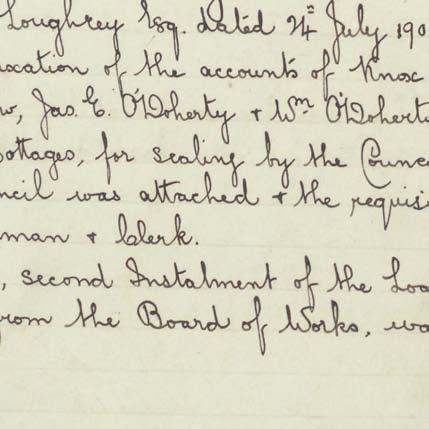 Loughrey Esq. dated 24th July 190
axation of the accounts of Knox
w, Jas. E. O'Doherty + Wm O'Doherty
ottages, for sealing by the Counc
ncil was attached + the requisi
man + Clerk.
, second Instalment of the Loa
rom the Board of Works, wa